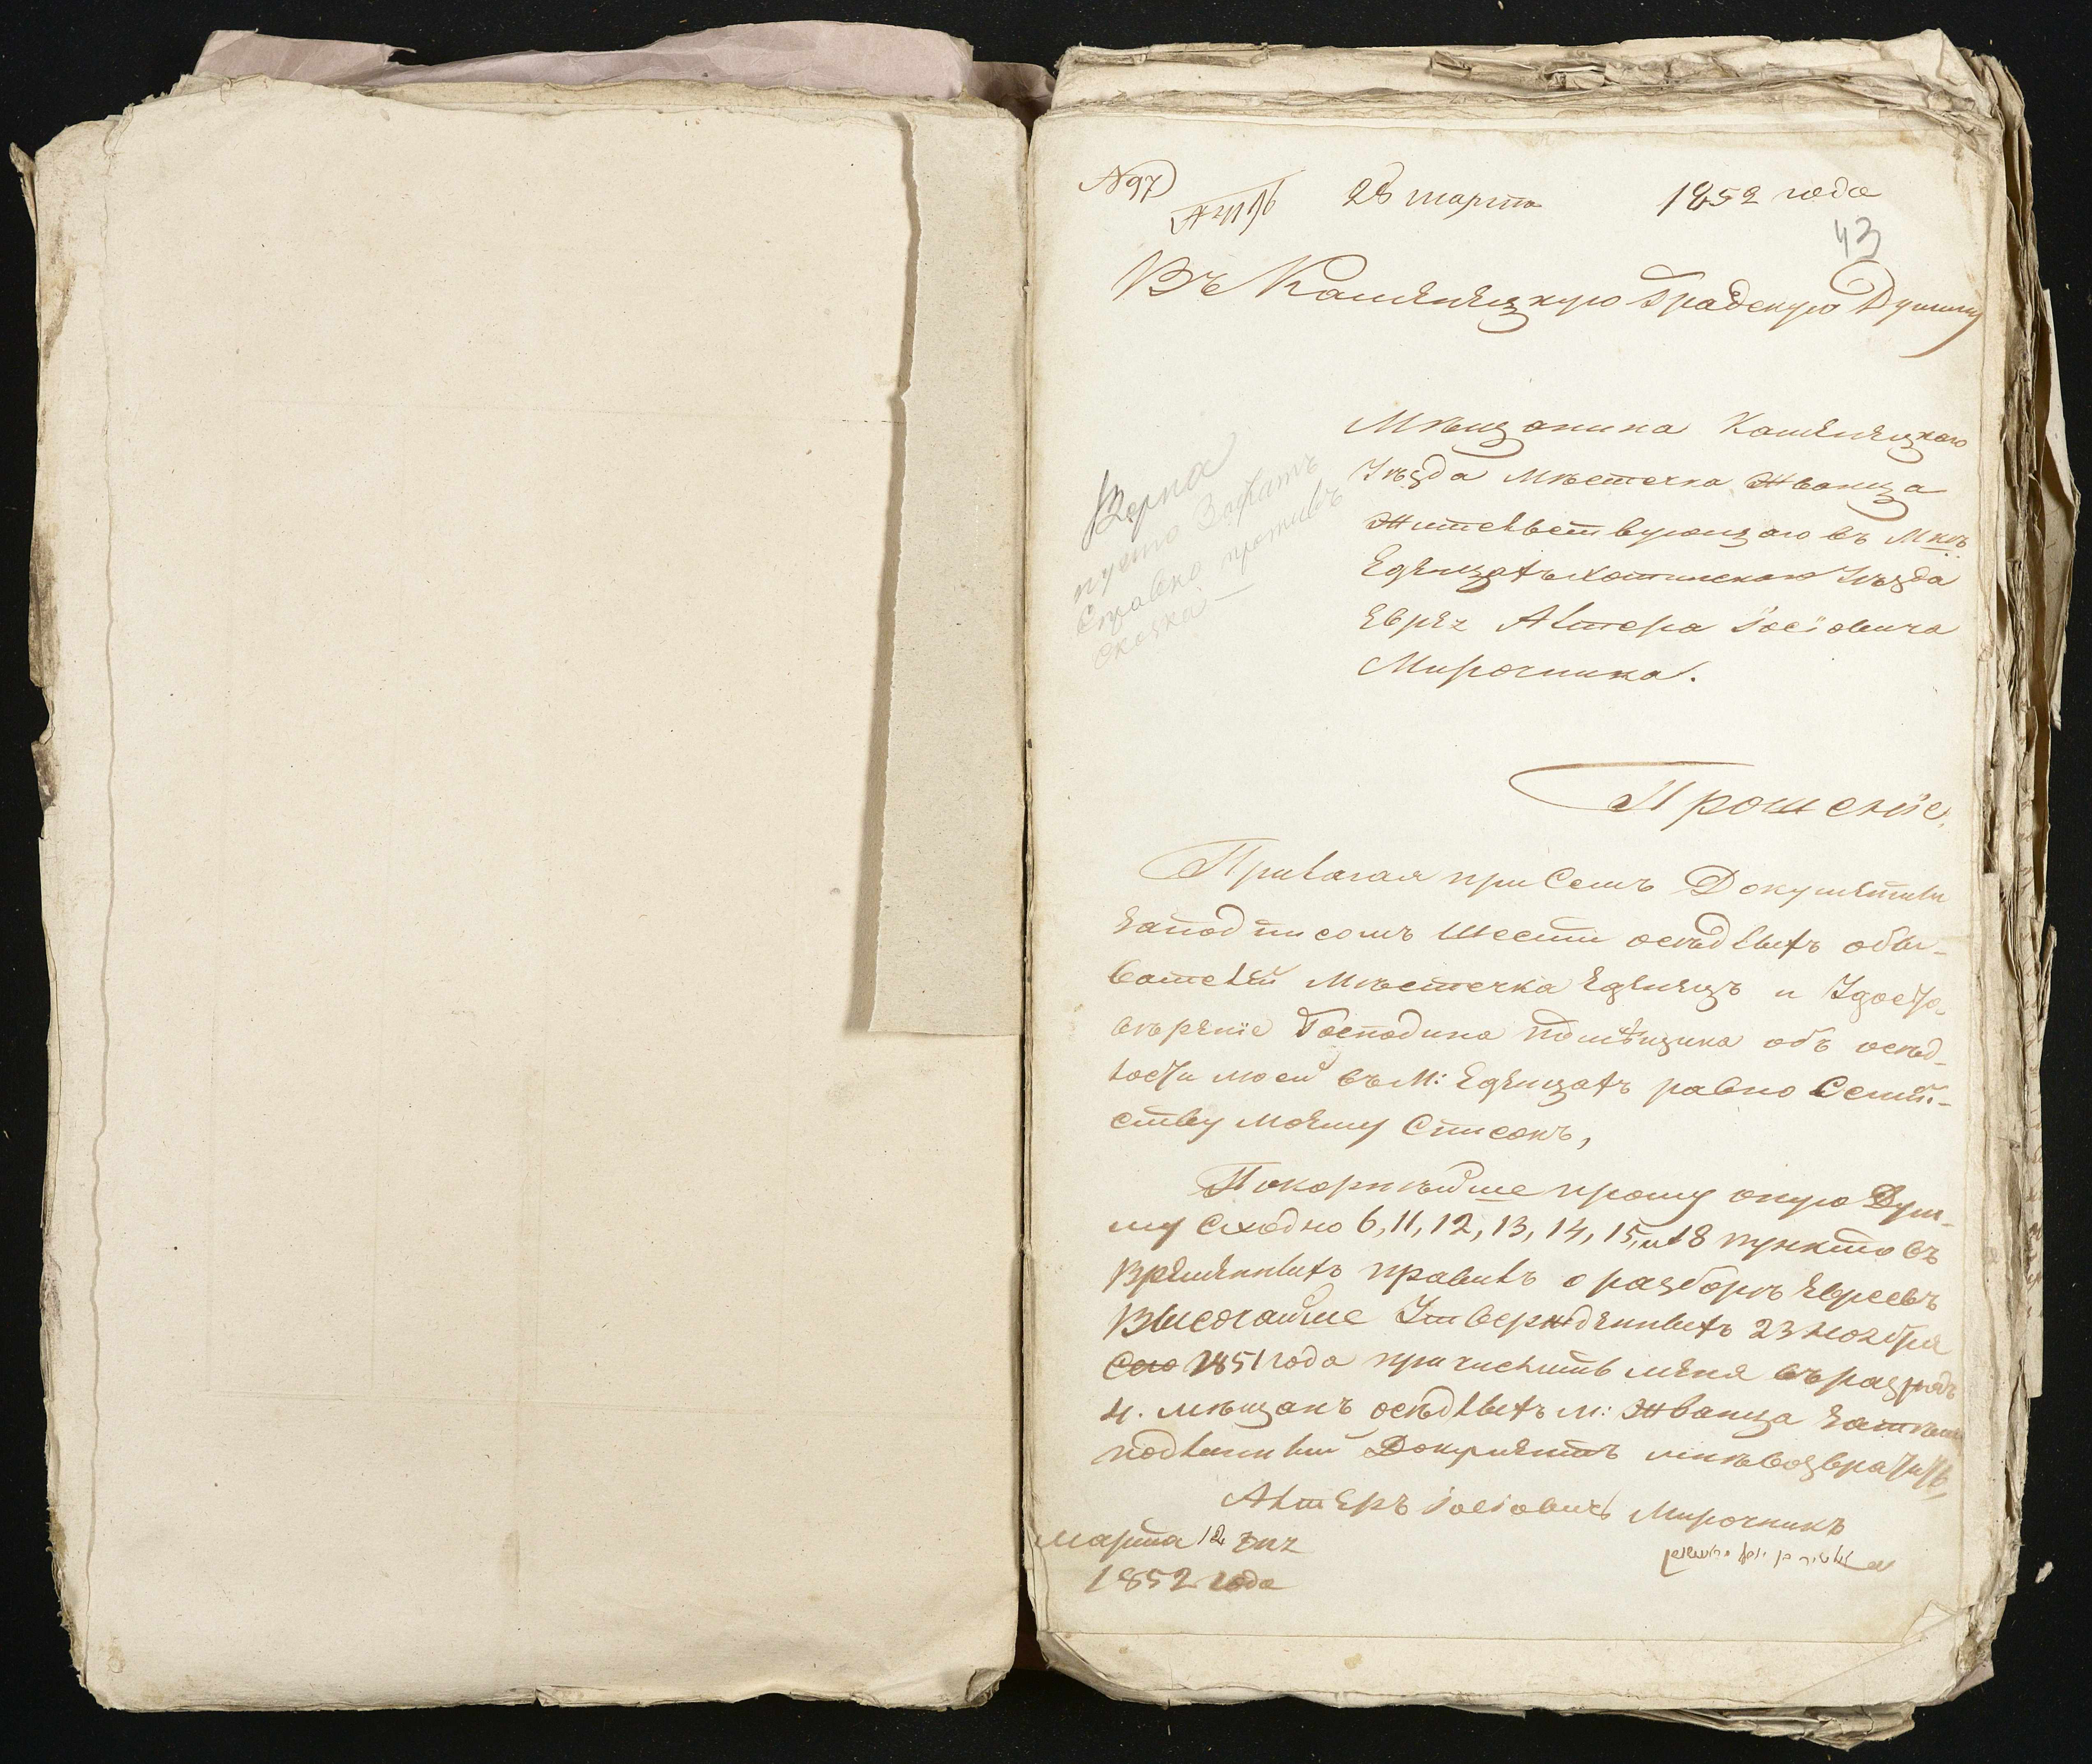 №97
28 марта 1852 года
43
Въ Каменецкую Градскую Думу
Мѣщанина Каменецкаго
Уѣзда Мѣстечка Жванца
Жительствующаго въ Мкѣ
Единцахъ Хотинскаго Уѣзда
Еврея Альтера Іосіовича
Мирочника.
Прошеніе.
Прилагая при Семъ Документъ
заподписомъ Шести осѣдлыхъ обы-
вателей Мѣстечка Единецъ и Удосто-
вѣреніе Господина помѣщика объ осѣд-
лости моей въ М: Единцахъ равно Семей-
ству моему Списокъ,
Покорнѣйше прошу оную Дум-
му Сходно 6, 11, 12, 13, 14, 15, и 18 пунктовъ
Временныхъ правилъ о разборѣ Евреевъ
Высочайше Утвержденныхъ 23 Ноября
Сего 1851 года причислить меня въ разрядъ
4. мѣщанъ осѣдлыхъ м: Жванца затѣмъ
подленный Документъ мнѣ возвратить,
Альтеръ Іосіовичъ Мирочникъ
марта 12 дня
1852 года